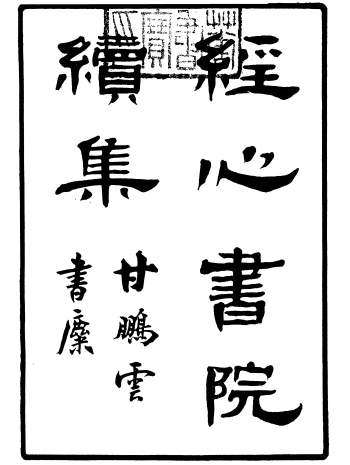 經心書院
續集
甘鵬雲
書㡾